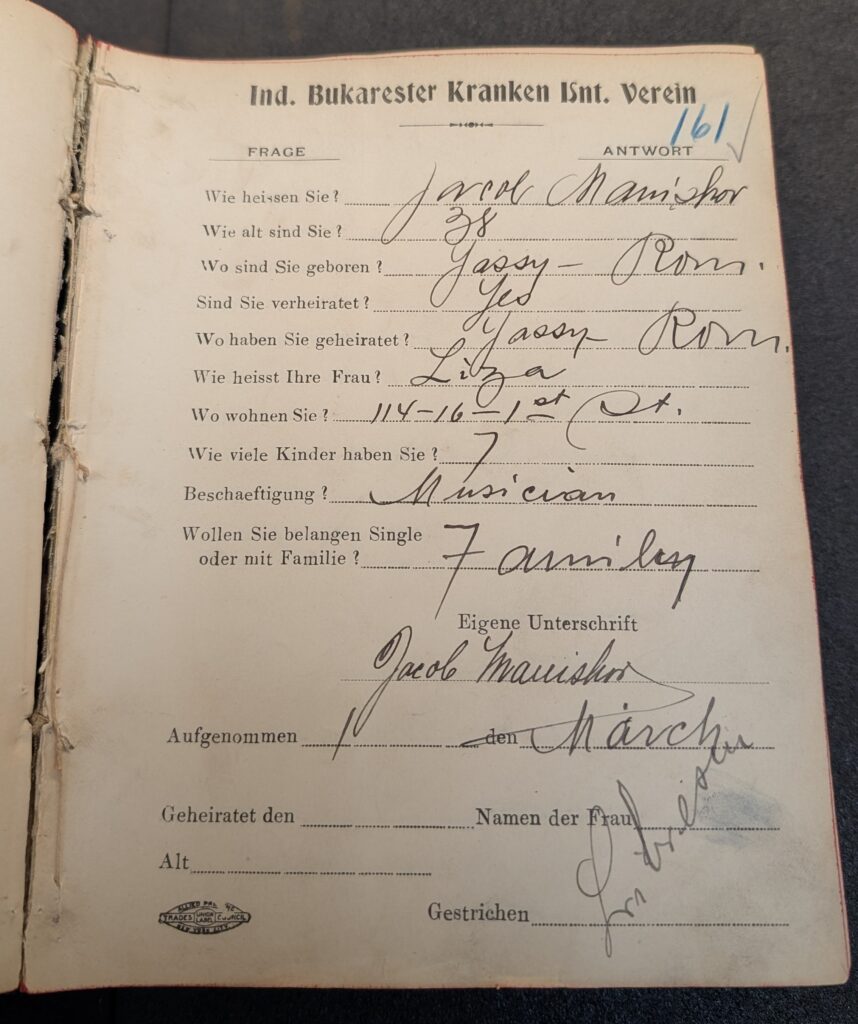 Ind. Bukarester Kranken Unt. Verein
161 ✓
FRAGE ANTWORT
Wie heissen Sie? Jacob Manishor
Wie alt sind Sie? 38
Wo sind Sie geboren? Jassy – Rom.
Sind Sie verheiratet? Yes
Wo haben Sie geheiratet? Jassy – Rom.
Wie heisst Ihre Frau? Liza
Wo wohnen Sie? 114-16-1st St.
Wie viele Kinder haben Sie? 7
Beschaeftigung? Musician
Wollen Sie belangen Single
oder mit Familie? Family
Eigene Unterschrift
Jacob Manishor
Aufgenommen 1 den March
Geheiratet den Namen der Frau
Alt
Gestrichen
ALLIED
TRADES UNION LABEL COUNCIL
NEW YORK CITY